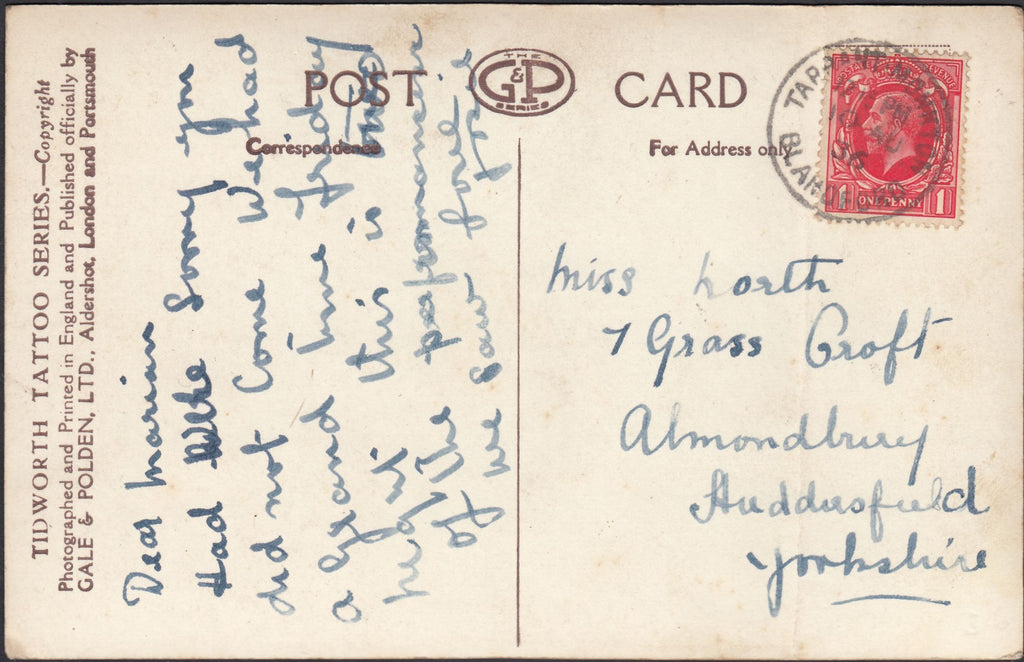 TIDWORTH TATTOO SERIES.—Copyright
Photographed and Printed in England and Published officially by
GALE & POLDEN, LTD., Aldershot, London and Portsmouth
POST CARD
THE
G&P
SERIES
Correspondence
For Address only
Dear Marian
Had Sorry you
did not Come We had
a Grand time friday
night this is
of the performance
of we saw
Miss North
7 Grass Croft
Almondbury
Huddersfield
Yorkshire
TARRANT
BLANDFORD
PM
AU
36
ONE PENNY
1 1